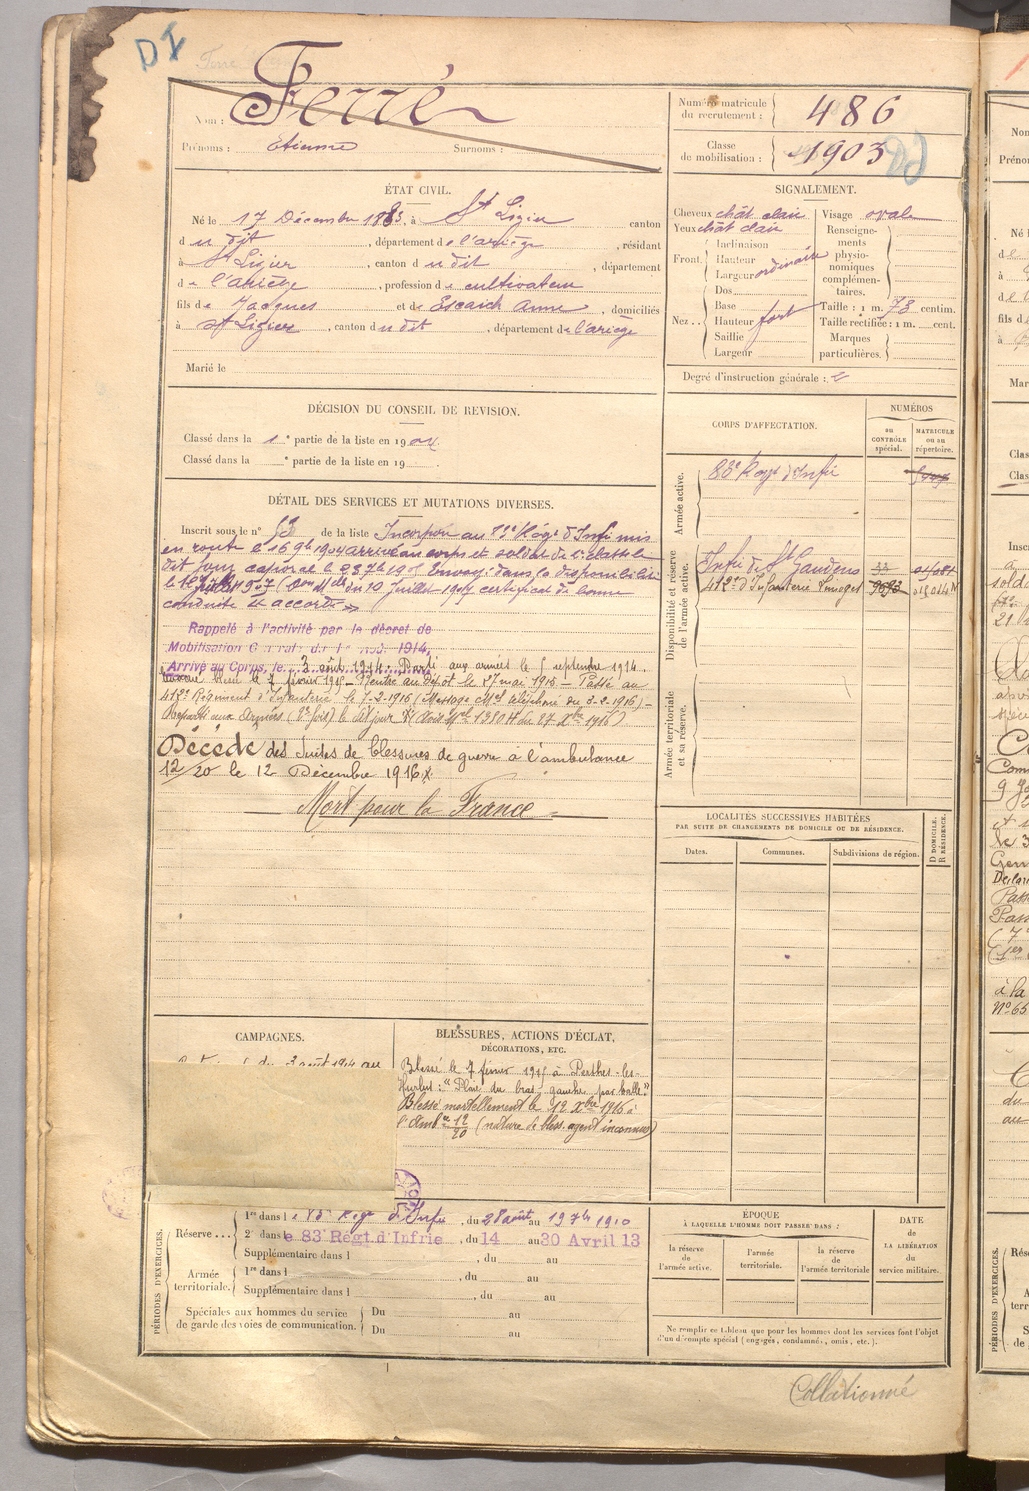 DI
Nom : Ferré
Prénoms : Etienne Surnoms :
Numéro matricule du recrutement : 486
Classe de mobilisation : 1903
ÉTAT CIVIL.
Né le 17 Décembre 1883, à St Lizier canton
du dit, département de l'ariège, résidant
à St Lizier, canton du dit, département
de l'ariège, profession de cultivateur
fils de Jacques et de Escaich Anne, domiciliés
à St Lizier, canton du dit, département de l'ariège
Marié le
SIGNALEMENT.
Cheveux chât clair
Yeux chât clair
Front. Inclinaison
Hauteur
Largeur ordinaire
Nez.. Dos
Base
Hauteur fort
Saillie
Largeur
Visage ovale
Renseignements physionomiques complémentaires.
Taille : 1 m. 73 centim.
Taille rectifiée : 1 m. cent.
Marques particulières.
Degré d'instruction générale :
DÉCISION DU CONSEIL DE REVISION.
Classé dans la 1e partie de la liste en 1904
Classé dans la e partie de la liste en 19
DÉTAIL DES SERVICES ET MUTATIONS DIVERSES.
Inscrit sous le n° 53 de la liste Incorporé au Régt d'Inf mis
en route le 16 9bre 1904 arrivé au corps et soldat de 2e classe le
dit jour caporal le 7bre 1905 Envoyé dans la disponibilité
le Juillet 1907 du 10 Juillet 1907 certificat de bonne
conduite "accordé"
Rappelé à l'activité par le décret de
Mobilisation Générale du 1er Août 1914,
Arrivé au Corps, le 3 août 1914. Parti aux armées le 5 septembre 1914.
blessé le 7 février 1915 – Rentré au Dépôt le 27 mai 1915 – Passé au
412e Régiment d'Infanterie le 7-2-1916 (Message Mel téléphoné du 3-2-1916) –
Reparti aux Armées (2e fois) le dit jour
Décédé des suites de blessures de guerre à l'ambulance
12/20 le 12 Décembre 1916
— Mort pour la France —
CORPS D'AFFECTATION.
NUMÉROS
au CONTRÔLE spécial.
MATRICULE ou au répertoire.
Armée active.
83e Régt d'Infie
Disponibilité et réserve de l'armée active.
Infie de St Gaudens 33
412e d'Infanterie Limoges
Armée territoriale et sa réserve.
LOCALITÉS SUCCESSIVES HABITÉES
PAR SUITE DE CHANGEMENTS DE DOMICILE OU DE RÉSIDENCE.
Dates. Communes. Subdivisions de région. D DOMICILE. R RÉSIDENCE.
CAMPAGNES.
du 3 août 1914 au
BLESSURES, ACTIONS D'ÉCLAT,
DÉCORATIONS, ETC.
Blessé le 7 février 1915 à Perthes-les-
Hurlus : "Plaie du bras gauche par balle"
Blessé mortellement le 12 Xbre 1916 à
l'Ambce 12/20 (nature de bless. agent inconnus)
PÉRIODES D'EXERCICES.
Réserve... 1re dans le 83e Régt d'Infie, du 28 août au 19 7bre 1910
2e dans le 83 Régt.d'Infrie, du 14 au 30 Avril 13
Supplémentaire dans l , du au
Armée territoriale. 1re dans l , du au
Supplémentaire dans l , du au
Spéciales aux hommes du service de garde des voies de communication. Du au
Du au
ÉPOQUE
À LAQUELLE L'HOMME DOIT PASSER DANS :
la réserve de l'armée active.
l'armée territoriale.
la réserve de l'armée territoriale
DATE de LA LIBÉRATION du service militaire.
Ne remplir ce tableau que pour les hommes dont les services font l'objet
d'un décompte spécial (engagés, condamné, omis, etc.).
Collationné